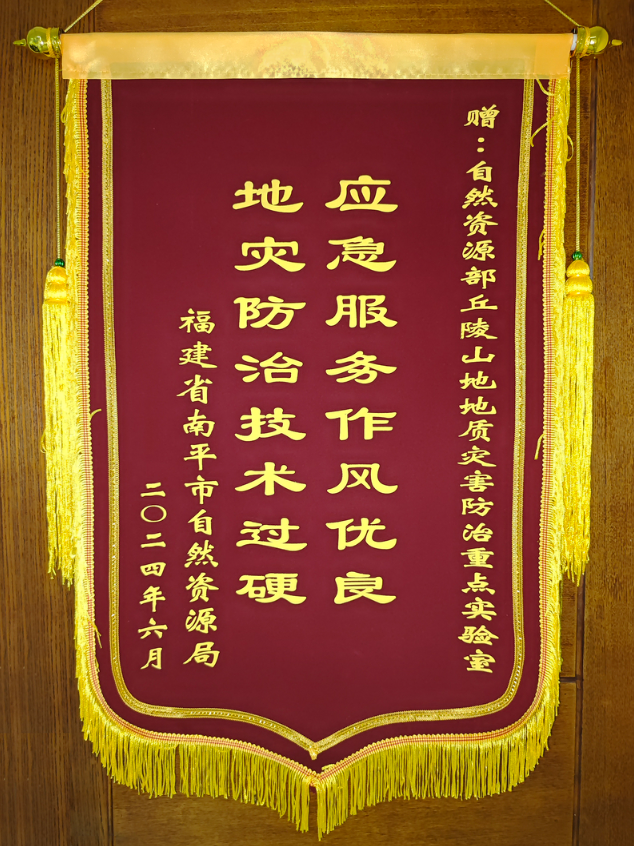 赠：自然资源部丘陵山地地质灾害防治重点实验室
应急服务作风优良
地灾防治技术过硬
福建省南平市自然资源局
二〇二四年六月